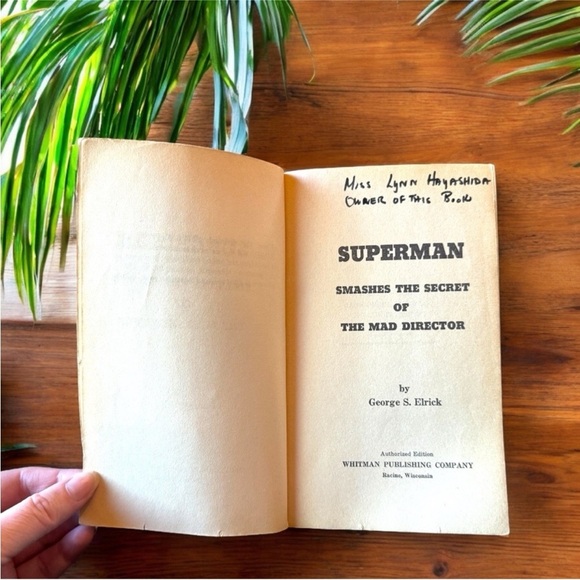 Miss Lynn Hayashida
Owner of This Book
SUPERMAN
SMASHES THE SECRET
OF
THE MAD DIRECTOR
by
George S. Elrick
Authorized Edition
WHITMAN PUBLISHING COMPANY
Racine, Wisconsin